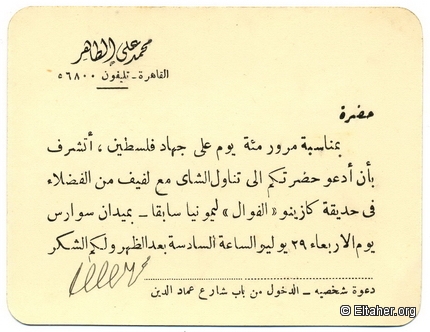 محمد على الطاهر
القاهرة - تليفون ٥٦٨٠٠
حضرة
بمناسبة مرور مئة يوم على جهاد فلسطين ، أتشرف
بأن أدعو حضرتكم الى تناول الشاى مع لفيف من الفضلاء
فى حديقة كازينو «الفوال» ليمونيا سابقا - بميدان سوارس
يوم الاربعاء ٢٩ يوليو الساعة السادسة بعد الظهر ولكم الشكر
دعوة شخصيه - الدخول من باب شارع عماد الدين
© Eltaher.org